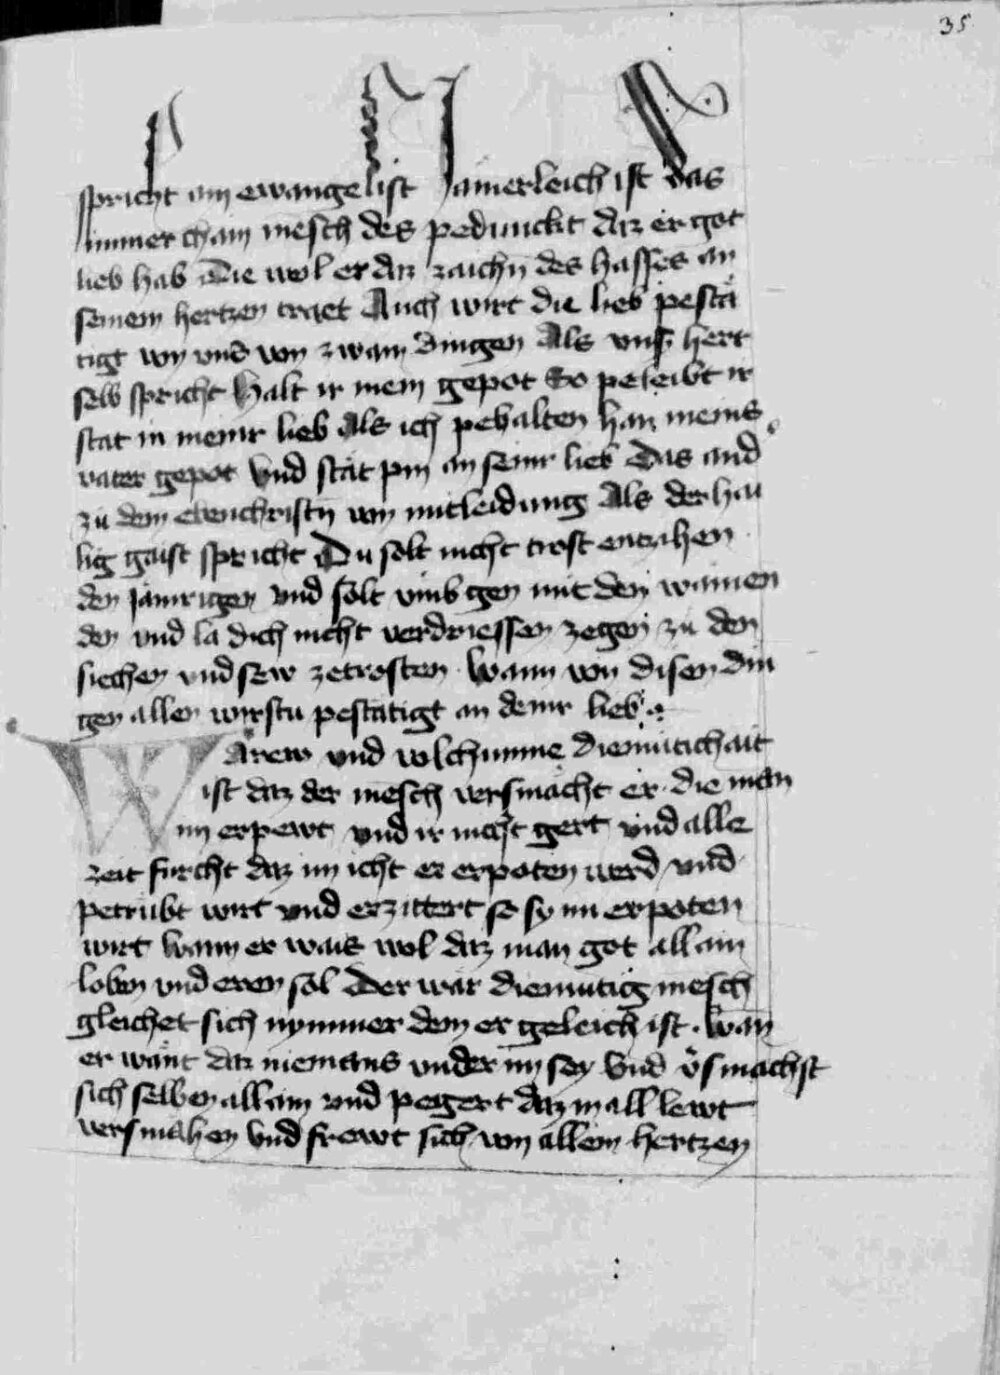 35
spricht ain ewangelist Jamerleich ist das
immer chain mēsch des pedunckt daz er got
lieb hab Die wol er daz zaichn̄ des hasses an
seinem hertzen traet Auch wirt die lieb pestä
tigt von uns von zwain dingen Als unß herr
selb spricht Halt ir mein gepot So peleibt ir
stät in meinr lieb Als ich pehalten han meins
vater gepot Und stät pin an seinr lieb Das and̾
zü dem ebenchristn̄ von mitleidung Als der hai
lig gaist spricht Du solt nicht trost enzahen
den jamrigen und solt umbgen mit den wainen
den und la dich nicht verdriessen zegen zü den
siechen und sew zetrosten. Wann von disen din
gen allen wirstu pestätigt an deinr lieb.
Warew und volchumne diemütichait
ist daz der mēsch versmächt er die man
im erpewt und ir nicht gert und alle
zeit fürcht daz im icht er erpoten werd und
petrübt wirt und erzittert so sy im erpoten
wirt Wann er wais wol daz man got allain
loben und eren sol Der wär diemütig mēsch
gleichet sich nymmer dem er geleich ist. Wan̄
er wänt daz niemans under im sey Und v̾smächt
sich selben allain und pegert daz in all lewt
versmahen Und frewt sich von allem hertzen